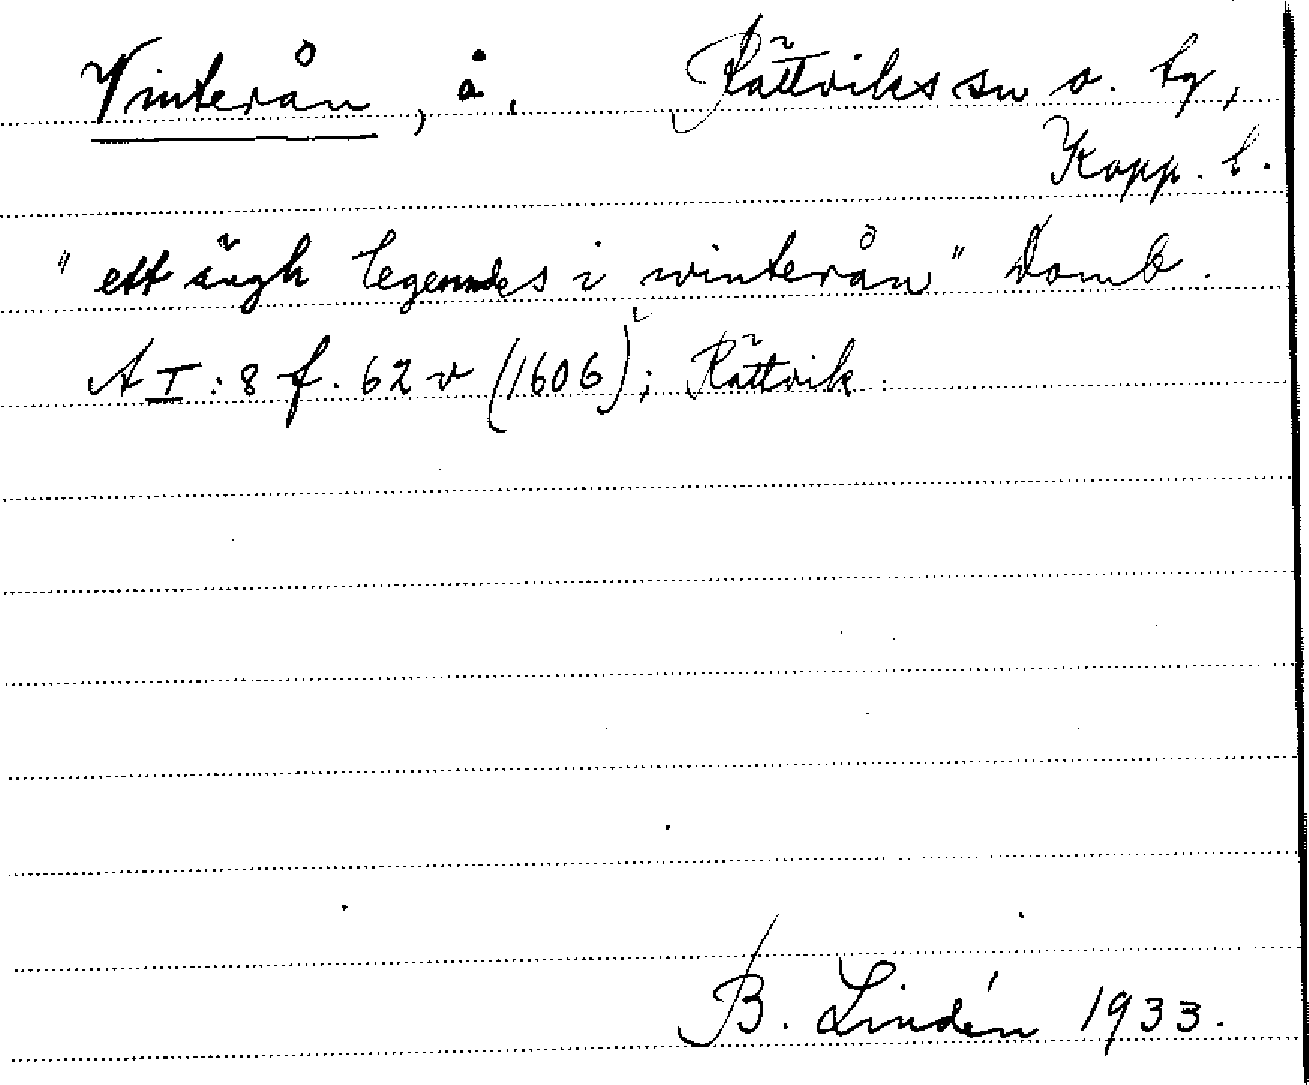 Vinterån, å. Rättviks sn o. tg,
Kopp. l.
"ett ängh legenndes i winterån" Domb.
A I: 8 f. 62 v (1606); Rättvik.
B. Lindén 1933.